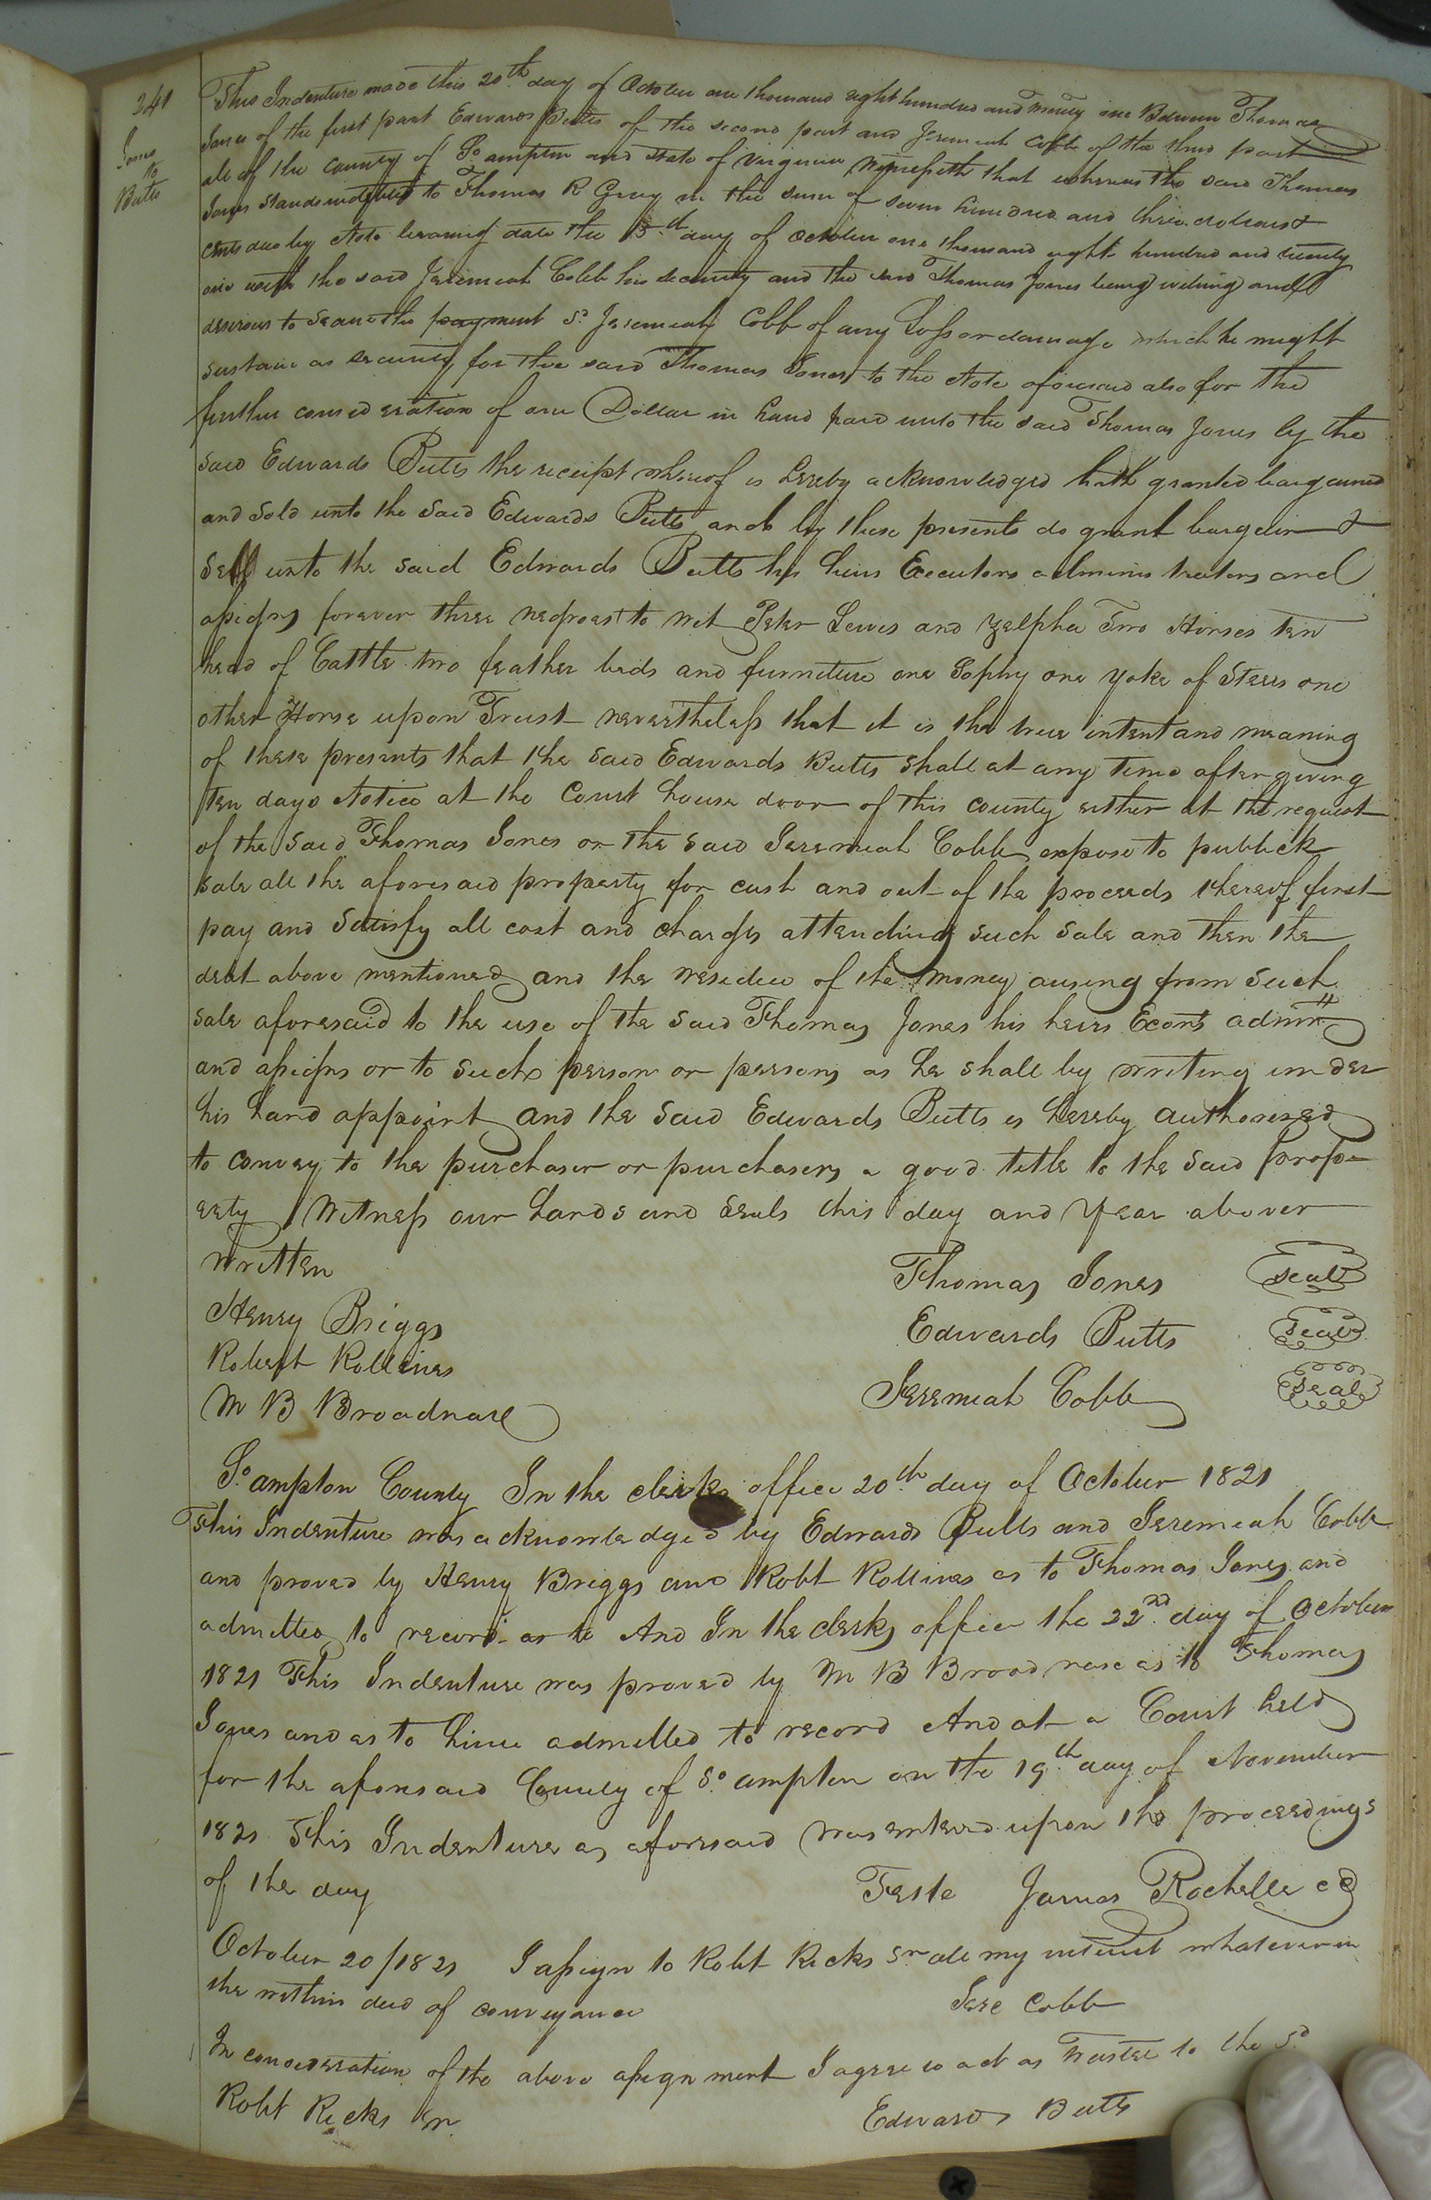 341
Jones
to
Butts
This Indenture made this 20th day of October one thousand eight hundred and twenty one Between Thomas
Jones of the first part Edwards Butts of the second part and Jeremiah Cobb of the third part
all of the county of So ampton and state of Virginia Witnesseth that whereas the said Thomas
Jones stands indebted to Thomas R Gray in the sum of seven hundred and three dollars &
cents due by Note bearing date the 15th day of October one thousand eight hundred and twenty
one with the said Jeremiah Cobb his security and the said Thomas Jones being willing and
desirous to secure the payment sd Jeremiah Cobb of any Loss or damage which he might
sustain as security for the said Thomas Jones to the Note aforesaid also for the
further consideration of one Dollar in hand paid unto the said Thomas Jones by the
said Edwards Butts the receipt whereof is hereby acknowledged hath granted bargained
and sold unto the said Edwards Butts and by these presents do grant bargain &
sell unto the said Edwards Butts his heirs Executors administrators and
assigns forever three negroes to wit Peter Lewis and Zelpha Two Horses ten
head of Cattle two feather beds and furniture one Sophy one yoke of Steers one
other Horse upon Trust nevertheless that it is the true intent and meaning
of these presents that the said Edwards Butts shall at any time after giving
ten days Notice at the Court house door of this county either at the request
of the said Thomas Jones or the said Jeremiah Cobb expose to publick
sale all the aforesaid property for cash and out of the proceeds thereof first
pay and satisfy all cost and charges attending such sale and then the
debt above mentioned and the residue of the money arising from such
sale aforesaid to the use of the said Thomas Jones his heirs Exors admrs
and assigns or to such person or persons as he shall by writing under
his hand appoint and the said Edwards Butts is hereby authorised
to convey to the purchaser or purchasers a good title to the said prop
erty Witness our hands and seals this day and year above
written
Thomas Jones seal
Henry Briggs
Edwards Butts seal
Robert Rollines
Jeremiah Cobb seal
M B Broadnase
So ampton County In the clerks office 20th day of October 1821
This Indenture was acknowledged by Edwards Butts and Jeremiah Cobb
and proved by Henry Briggs and Robt Rollines as to Thomas Jones and
admitted to record as to And In the clerks office the 22nd day of October
1821 This Indenture was proved by M B Broadnase as to Thomas
Jones and as to him admitted to record And at a Court held
for the aforesaid County of So ampton on the 19th day of November
1821 This Indenture as aforesaid was entered upon the proceedings
of the day
Teste James Rochelle cc
October 20/1821 I assign to Robt Ricks Sr all my interest whatever in
the within deed of conveyance
Jere Cobb
In consideration of the above assignment I agree to act as Trustee to the sd
Robt Ricks Sr.
Edwards Butts